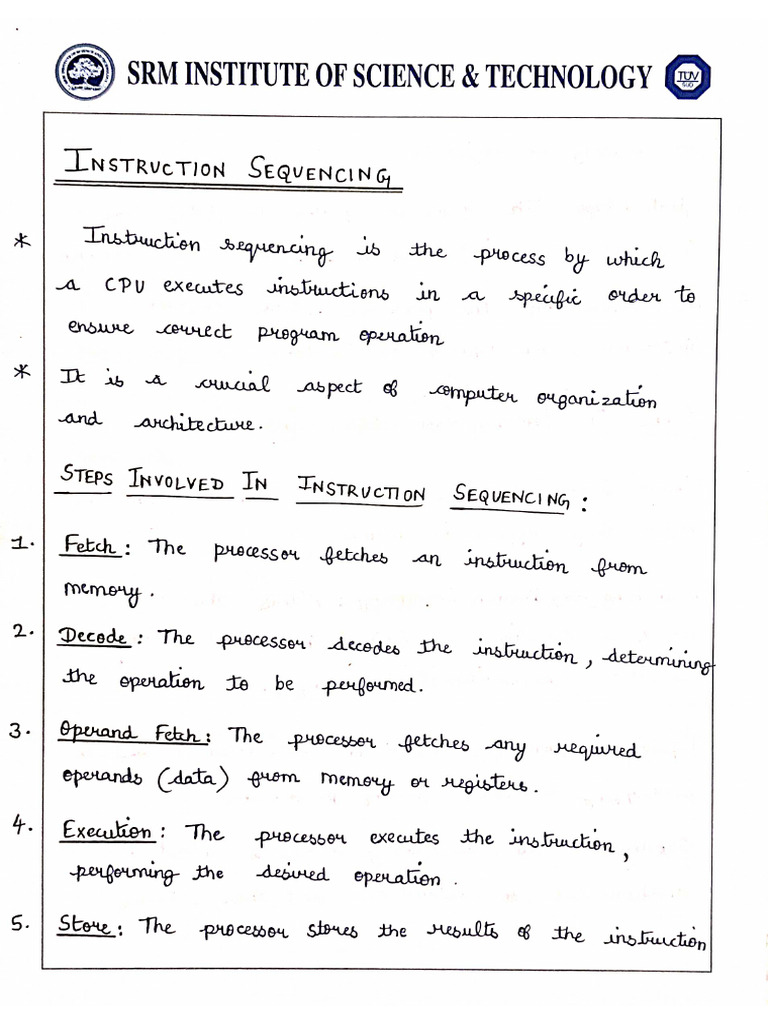 SRM INSTITUTE OF SCIENCE & TECHNOLOGY
TÜV
SÜD
INSTRUCTION SEQUENCING
* Instruction sequencing is the process by which
a CPU executes instructions in a specific order to
ensure correct program operation
* It is a crucial aspect of computer organization
and architecture.
STEPS INVOLVED IN INSTRUCTION SEQUENCING :
1. Fetch : The processor fetches an instruction from
memory.
2. Decode : The processor decodes the instruction, determining
the operation to be performed.
3. Operand Fetch : The processor fetches any required
operands (data) from memory or registers.
4. Execution : The processor executes the instruction,
performing the desired operation.
5. Store : The processor stores the results of the instruction